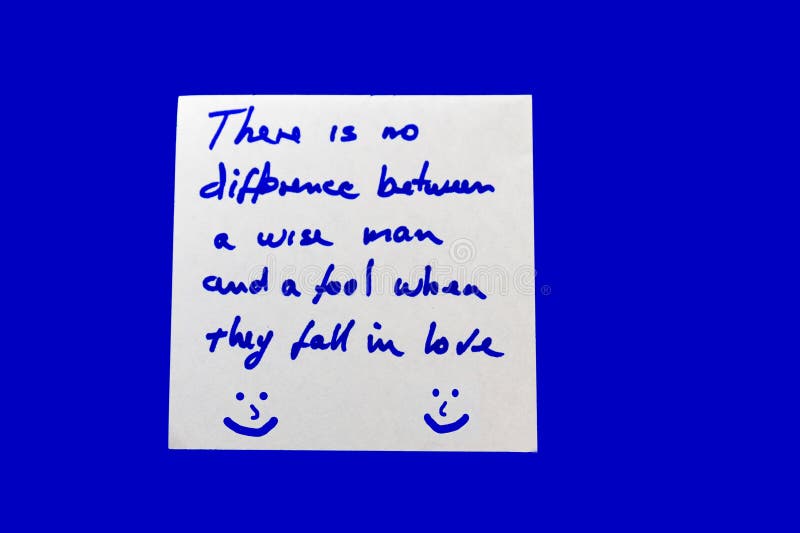 There is no
difference between
a wise man
and a fool when
they fall in love
dreamstime